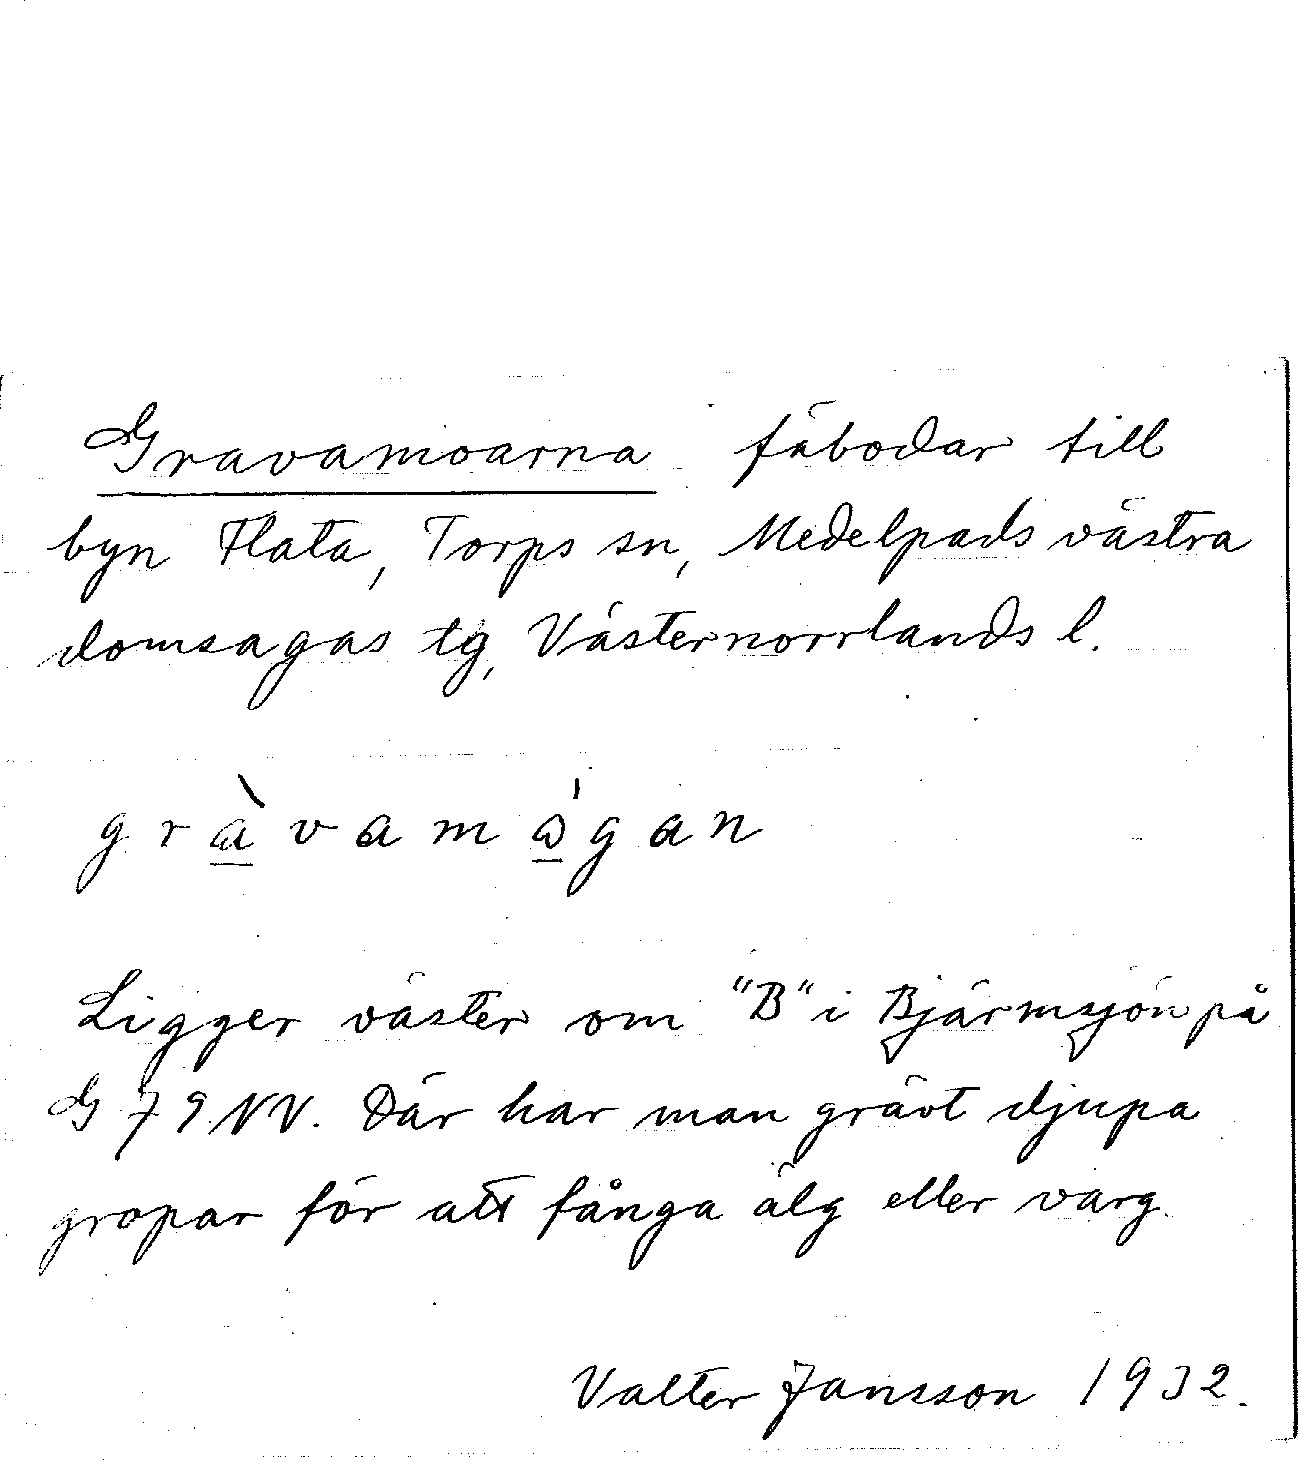 Gravamoarna fäbodar till
byn Flata, Torps sn, Medelpads västra
domsagas tg, Västernorrlands l.
gràvamógan
Ligger väster om "B" i Bjärmsjön på
G 79 NV. Där har man grävt djupa
gropar för att fånga älg eller varg.
Valter Jansson 1932.